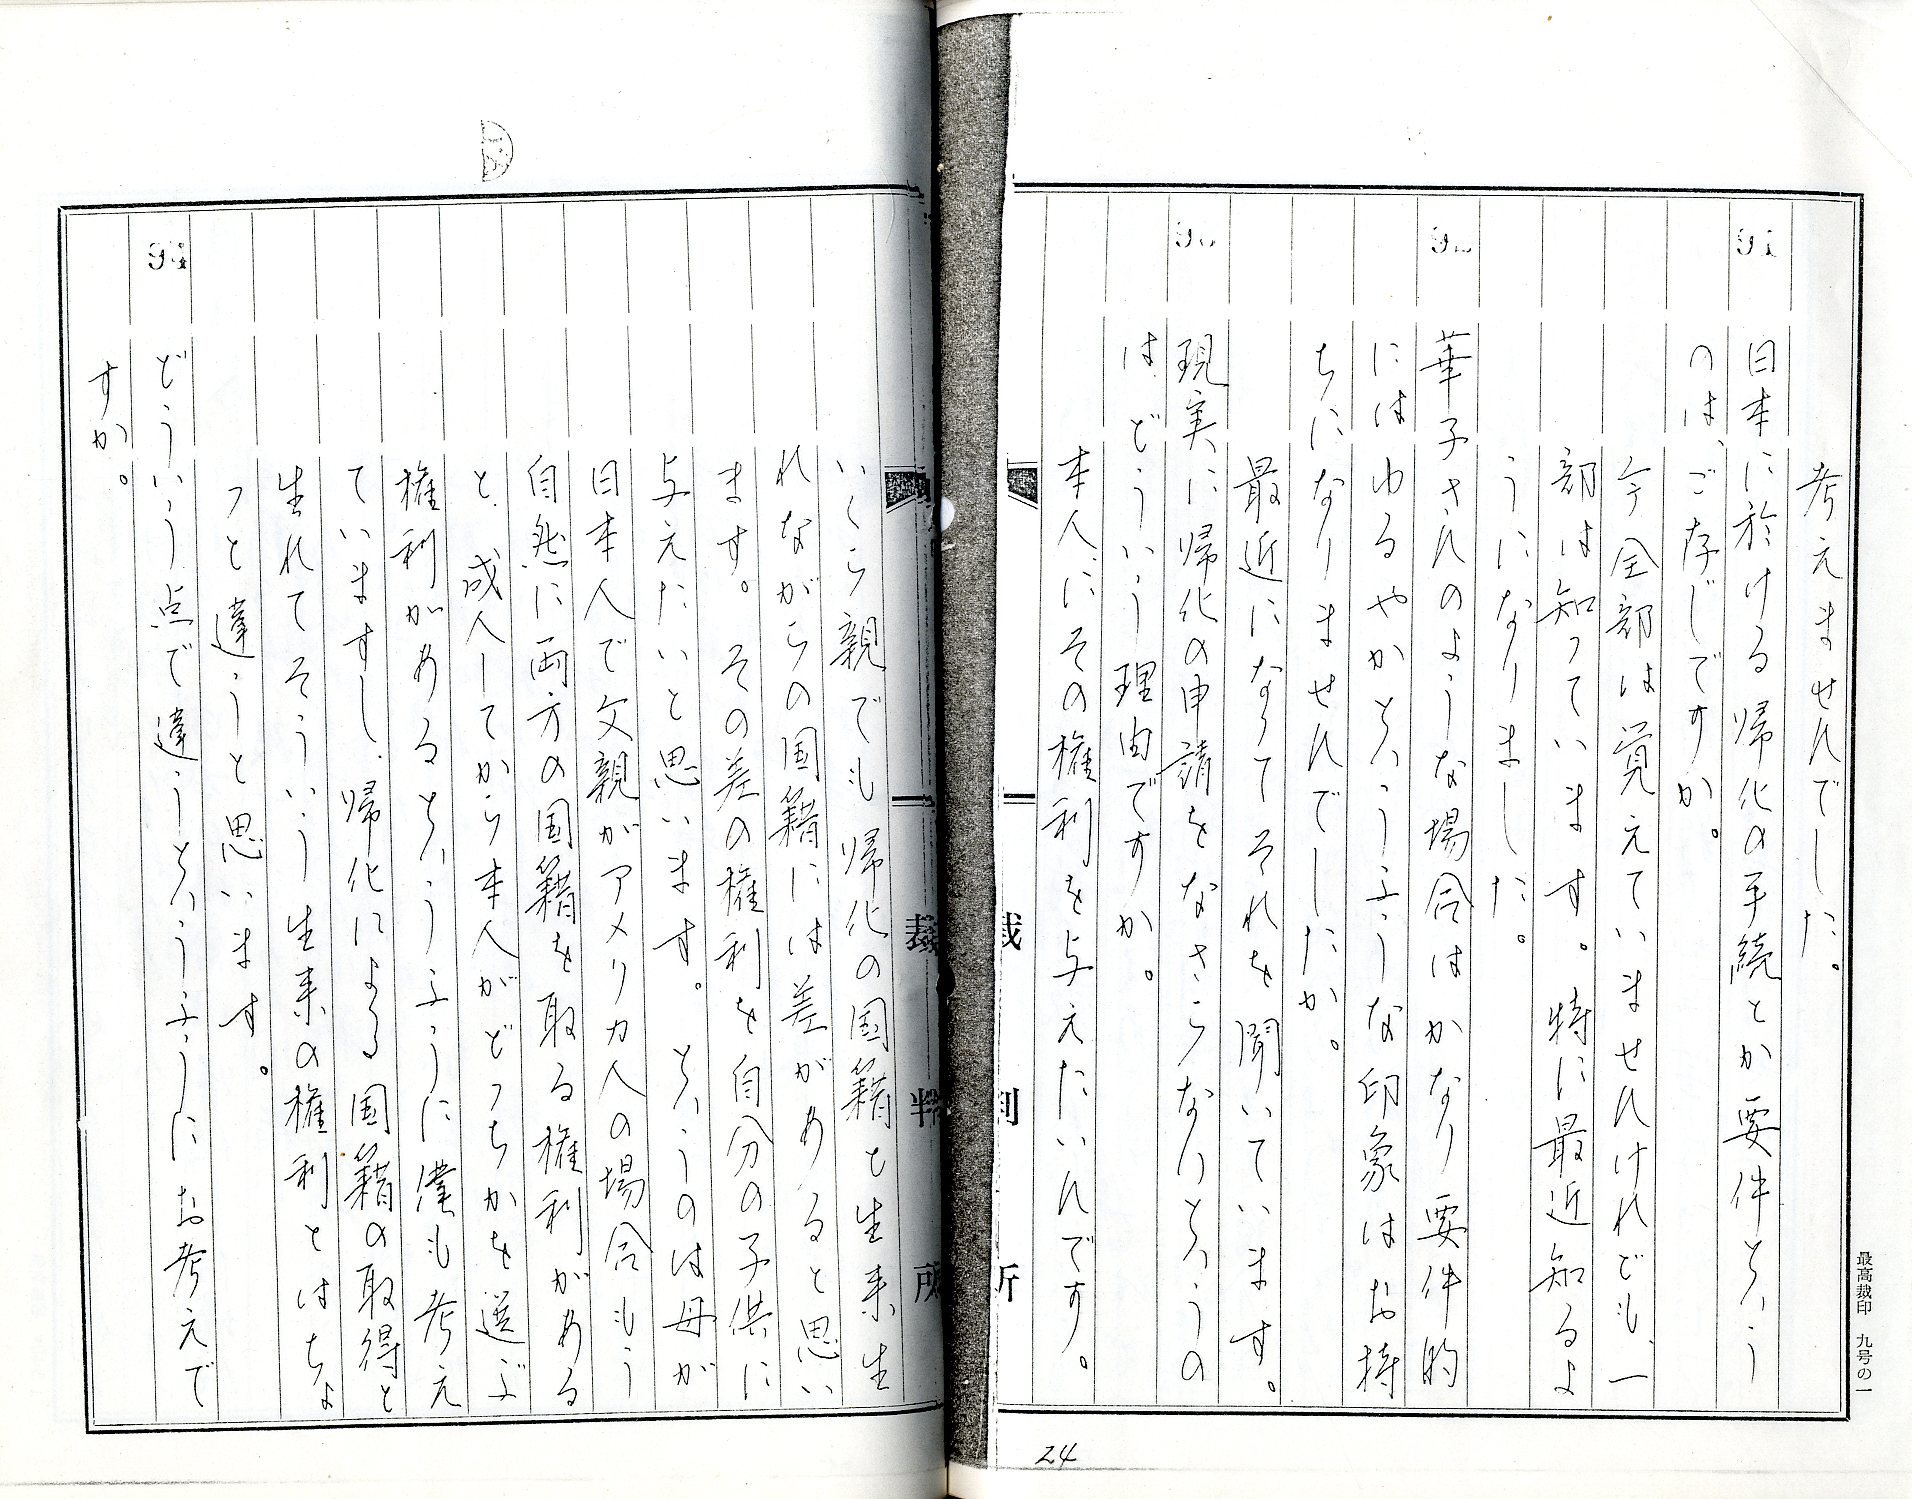 考えませんでした。
日本に於ける帰化の手続とか要件という
のは、ご存じですか。
今全部は覚えていませんけれども、一
部は知っています。特に最近知るよ
うになりました。
華子さんのような場合はかなり要件的
にはゆるやかというふうな印象はお持
ちになりませんでしたか。
最近になってそれを聞いています。
現実に帰化の申請をなさらないというの
は、どういう理由ですか。
本人にその権利を与えたいんです。
24
最高裁印 九号の一
裁判所
いくら親でも帰化の国籍と生来生
れながらの国籍には差があると思い
ます。その差の権利を自分の子供に
与えたいと思います。というのは母が
日本人で父親がアメリカ人の場合もう
自然に両方の国籍を取る権利がある
と、成人してから本人がどっちかを選ぶ
権利があるというふうに僕も考え
ていますし、帰化による国籍の取得と
生れてそういう生来の権利とはちょ
っと違うと思います。
どういう点で違うというふうにお考えで
すか。
裁判所